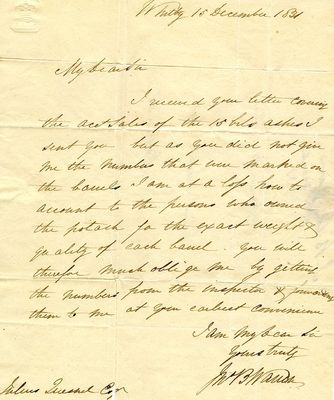 Whitby 15 December 1831
My dear Sir
I received your letter covering
the acct sales of the 15 bls ashes I
sent you but as you did not give
me the numbers that were marked on
the barrels I am at a loss how to
account to the persons who owned
the potash for the exact weight &
quality of each barrel. you will
therefore much oblige me by getting
the numbers from the inspector & forwarding
them to me at your earliest convenience
I am my Dear Sir
yours truly
Jno B Warren
Julius Quesnel Esqr